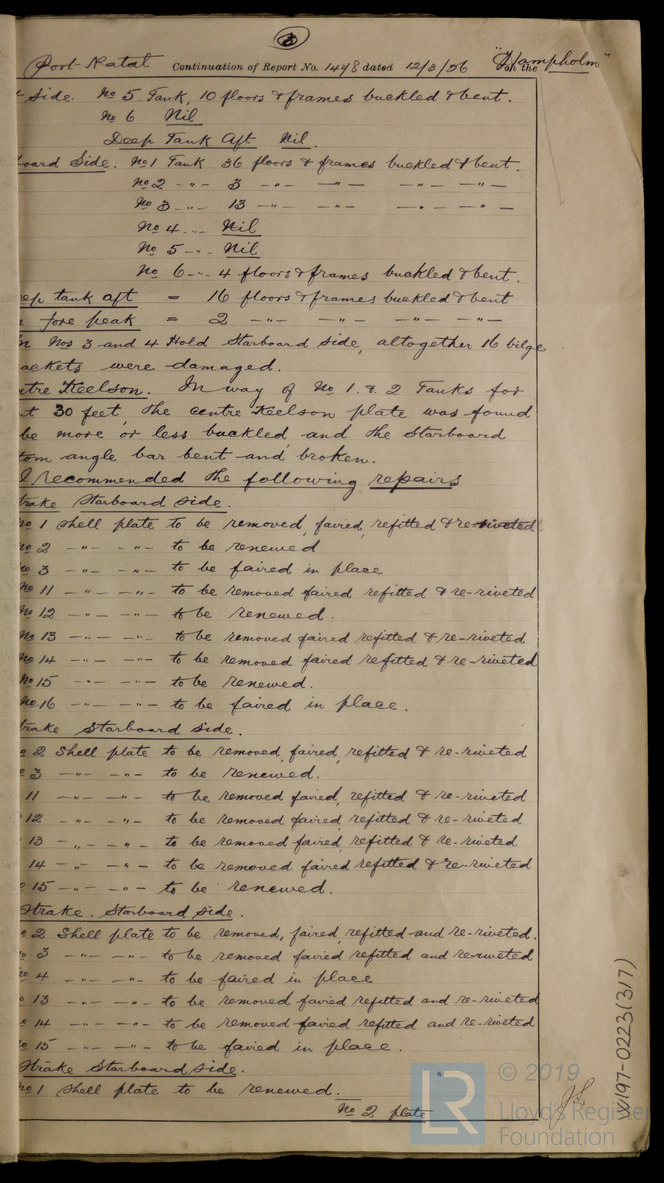 2
Port Natal Continuation of Report No. 1448 dated 12/3/56 on the "Hampholm"
Side. No 5 Tank, 10 floors & frames buckled & bent.
No 6 Nil
Deep Tank Aft Nil.
oard Side. No 1 Tank 36 floors & frames buckled & bent.
No 2 -"- 3 -"- -"- -"- -"-
No 3 -"- 13 -"- -"- -"- -"-
No 4 -"- Nil
No 5 -"- Nil
No 6 -"- 4 floors & frames buckled & bent.
ep tank aft = 16 floors & frames buckled & bent
fore peak = 2 -"- -"- -"- -"-
n Nos 3 and 4 Hold Starboard side, altogether 16 bilge
ackets were damaged.
tre Keelson. In way of No 1. & 2 Tanks for
t 30 feet, the centre Keelson plate was found
be more or less buckled, and the Starboard
tom angle bar bent and broken.
I recommended the following repairs
trake Starboard side.
No 1 shell plate to be removed, faired, refitted & re-riveted
No 2 -"- -"- to be renewed
No 3 -"- -"- to be faired in place
No 11 -"- -"- to be removed faired refitted & re-riveted
No 12 -"- -"- to be renewed.
No 13 -"- -"- to be removed faired refitted & re-riveted
No 14 -"- -"- to be removed faired refitted & re-riveted
No 15 -"- -"- to be renewed.
No 16 -"- -"- to be faired in place.
trake Starboard side.
o 2 Shell plate to be removed, faired, refitted & re-riveted
o 3 -"- -"- to be renewed.
11 -"- -"- to be removed faired, refitted & re-riveted
12 -"- -"- to be removed faired refitted & re-riveted
13 -"- -"- to be removed faired, refitted & re-riveted
14 -"- -"- to be removed faired refitted & re-riveted
o 15 -"- -"- to be renewed.
Strake. Starboard side.
o 2 Shell plate to be removed, faired, refitted and re-riveted.
o 3 -"- -"- to be removed faired refitted and re-riveted
o 4 -"- -"- to be faired in place
o 13 -"- -"- to be removed faired refitted and re-riveted
o 14 -"- -"- to be removed faired refitted and re-riveted
o 15 -"- -"- to be faired in place.
Strake Starboard side.
No 1 shell plate to be renewed.
No 2 plate
W197-0223(317)
LR
© 2019
Lloyd's Register
Foundation